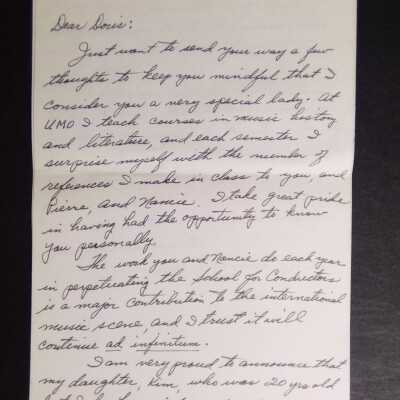 Dear Doris:
Just want to send your way a few
thoughts to keep you mindful that I
consider you a very special lady. At
UMO I teach courses in music history
and literature, and each semester I
surprise myself with the number of
references I make in class to you, and
Pierre, and Nancie. I take great pride
in having had the opportunity to know
you personally.
The work you and Nancie do each year
in perpetuating the School for Conductors
is a major contribution to the international
music scene, and I trust it will
continue ad infinitum.
I am very proud to announce that
my daughter, Kim, who was 20 yrs old